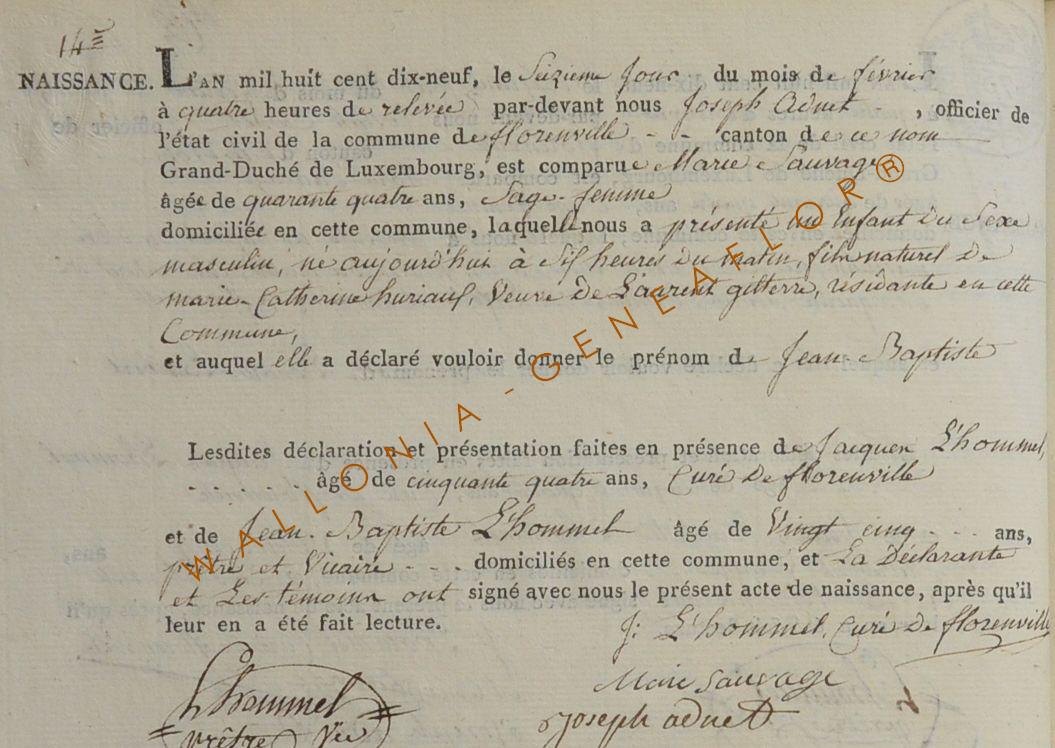 14e
NAISSANCE. L'AN mil huit cent dix-neuf, le Seizieme Jour du mois de février
à quatre heures de relevée par-devant nous Joseph Adnet - , officier de
l'état civil de la commune de florenville - - canton de ce nom
Grand-Duché de Luxembourg, est comparue Marie Sauvage
âgée de quarante quatre ans, Sage-femme
domiciliée en cette commune, laquelle nous a présenté un Enfant Du Sexe
masculin, né aujourd'hui à Six heures Du matin, fils naturel De
marie-Catherine huriaux, Veuve De Laurent gilterre, résidante en cette
Commune,
et auquel elle a déclaré vouloir donner le prénom de Jean-Baptiste
Lesdites déclaration et présentation faites en présence de Jacques L'hommel,
. . . . . . âgé de cinquante quatre ans, Curé De florenville
et de Jean-Baptiste L'hommel âgé de Vingt cinq - - - ans,
prêtre et Vicaire - - - domiciliés en cette commune, et La Déclarante
et Les témoins ont signé avec nous le présent acte de naissance, après qu'il
leur en a été fait lecture.
J: L'hommel, Curé De florenville
Marie Sauvage
Lhommel
Joseph adnet
prêtre Vic
WALLONIA-GENEAFLOR®